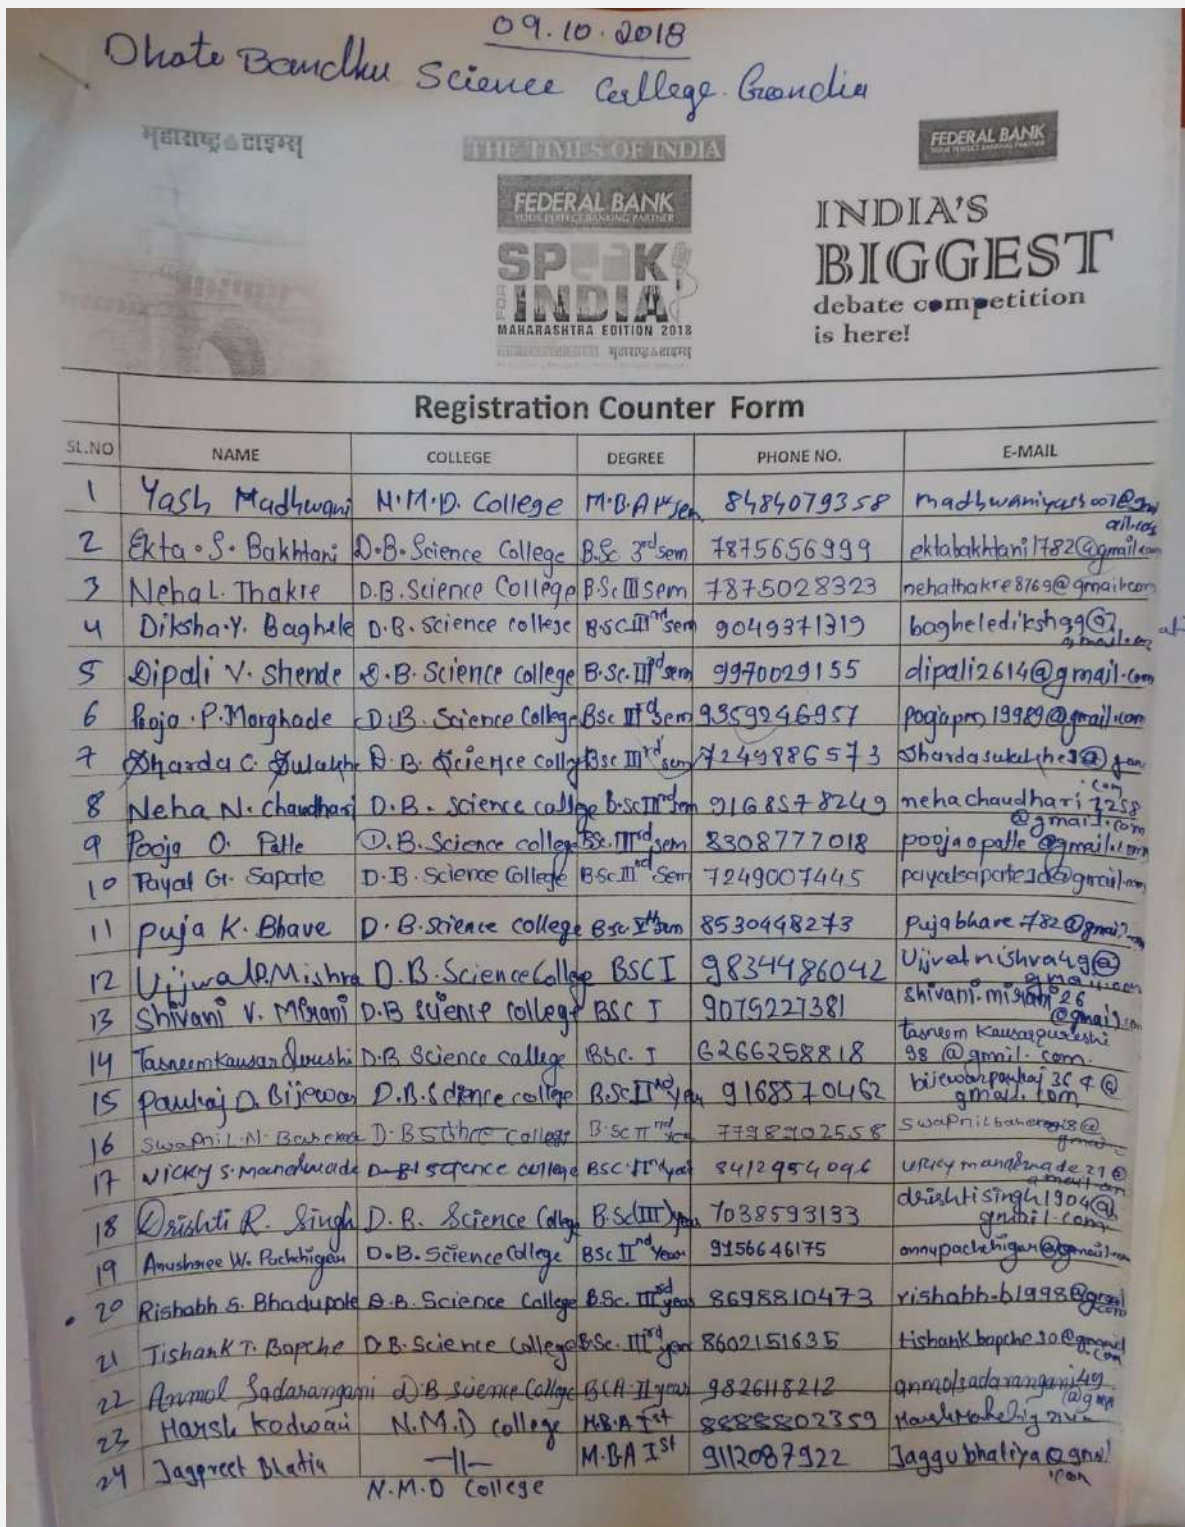 09.10.2018
Dhote Bandhu Science College Gondia
महाराष्ट्र टाइम्स
THE TIMES OF INDIA
FEDERAL BANK
YOUR PERFECT BANKING PARTNER
FEDERAL BANK
YOUR PERFECT BANKING PARTNER
SPEAK
FOR INDIA
MAHARASHTRA EDITION 2018
महाराष्ट्र टाइम्स
INDIA'S
BIGGEST
debate competition
is here!
Registration Counter Form
SL.NO NAME COLLEGE DEGREE PHONE NO. E-MAIL
1 Yash Madhwani N.M.D. College M.B.A Ist sem 8484079358
2 Ekta.S.Bakhtani D.B.Science College B.Sc 3rd sem 7875656999 ektabakhtani1782@gmail.com
3 Neha L. Thakre D.B.Science College B.Sc III sem 7875028323 nehathakre8769@gmail.com
4 Diksha.Y. Baghele D.B. Science college B.SC IIIrd sem 9049371319
5 Dipali V. Shende D.B. Science college B.Sc. IIIrd sem 9970029155 dipali2614@gmail.com
6 Pooja.P.Marghade D.B. Science College Bsc IIIrd Sem 9359246957
7 Sharda C. D.B. Science colleg Bsc IIIrd sem 7249886573
8 Neha N. Chaudhari D.B. science college B.sc IIIrd Sem 9168578249 nehachaudhari7258
@gmail.com
9 Pooja O. Patle D.B. Science college BSc. IIIrd sem 8308777018 poojaopatle@gmail.com
10 Payal G. Sapate D.B. Science College B.Sc III Sem 7249007445
11 Puja K. Bhave D.B.Science college B.sc Vth Sem 8530448273 pujabhave782@gmail.com
12 Ujjwal D.Mishra D.B.Science College BSC I 9834486042
13 Shivani V. Mirani D.B science college BSC I 9075227381 shivani.mirani26
@gmail.com
14 Tasneem Kausar Qureshi D.B Science college BSC. I 6266258818 tasneem kausarqureshi
98@gmail.com.
15 Pankaj D. Bijewar D.B.Science college B.Sc IInd year 9168570462 bijewarpankaj364@
gmail.com
16 Swapnil.N. D.B Science College B.SC IInd year 7798902558
17 Vicky S. D.B science college BSC.IInd year 8412954096
18 Drishti R. Singh D.B. Science College B.Sc(III) year 7038593133 drishtisingh1904@
gmail.com
19 Anushree W. Pachchigar D.B.Science College BSc IInd Year 9156646175 annupachchigar@gmail.com
20 Rishabh S. Bhadupote D.B. Science College B.Sc. IIIrd year 8698810473 rishabh.b1998@gmail
.com
21 Tishank T. Bopche D.B.Science College BSc. IIIrd year 8602151635 tishankbopche30@gmail
.com
22 Anmol Sadarangani D.B science College BCA-II year 9826118212 anmolsadarangani49
23 Harsh Kodwani N.M.D college M.B.A Ist 8888802359
24 Jagpreet Bhatia —||— M.B.A Ist 9112087922 Jaggubhatiya@gmail
.com
N.M.D College